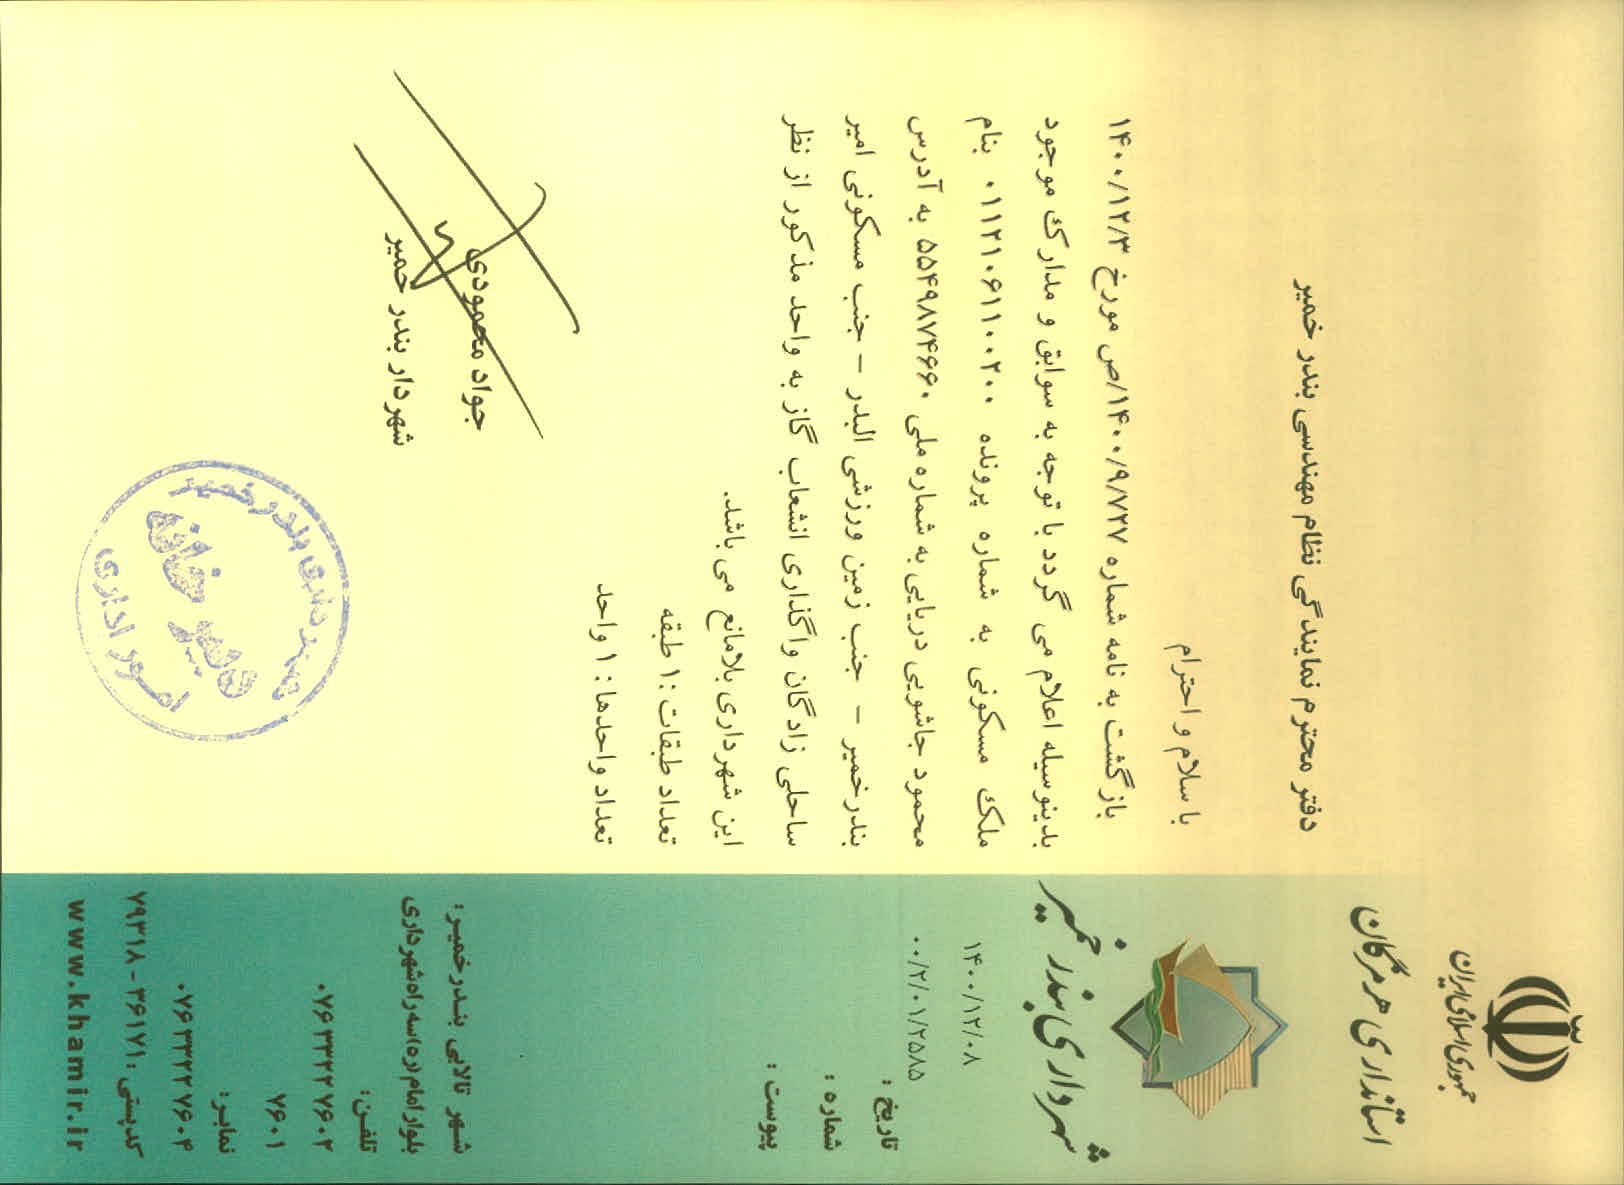 جمهوری اسلامی ایران
استانداری هرمزگان
شهرداری بندر خمیر
۱۴۰۰/۱۲/۰۸
۰۰/۲/۰۱/۲۵۸۵
تاریخ :
شماره :
پیوست :
دفتر محترم نمایندگی نظام مهندسی بندر خمیر
با سلام و احترام
بازگشت به نامه شماره ۱۴۰۰/۹/۷۲۷/ص مورخ ۱۴۰۰/۱۲/۳
بدینوسیله اعلام می گردد با توجه به سوابق و مدارک موجود
ملک مسکونی به شماره پرونده ۰۱۱۲۱۰۶۱۱۰۰۲۰۰ بنام
محمود جاشویی دریایی به شماره ملی ۵۵۴۹۸۷۴۶۶۰ به آدرس
بندرخمیر - جنب زمین ورزشی البدر - جنب مسکونی امیر
ساحلی زادگان واگذاری انشعاب گاز به واحد مذکور از نظر
این شهرداری بلامانع می باشد.
تعداد طبقات :۱ طبقه
تعداد واحدها : ۱ واحد
جواد محمودی
شهردار بندر خمیر
شهرداری بندر خمیر
دبیر خانه
امور اداری
شهر تالابی بندرخمیر :
بلوار امام (ره) سه راه شهرداری
تلفن:
۰۷۶۳۳۳۲۷۶۰۲
۷۶۰۱
نمابر:
۰۷۶۳۳۳۲۷۶۰۴
کدپستی : ۳۶۱۷۱ - ۷۹۳۱۸
www.khamir.ir